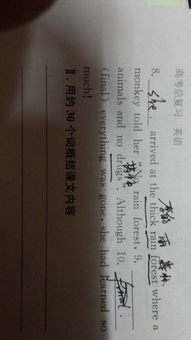 高考总复习 英语
8. she arrived at the thick rain forest where a
monkey told her " rain forest, 9.
animals and no drugs". Although 10.
(final) everything was gone, she had learned so
much!
Ⅱ.用约 30 个词概括课文内容